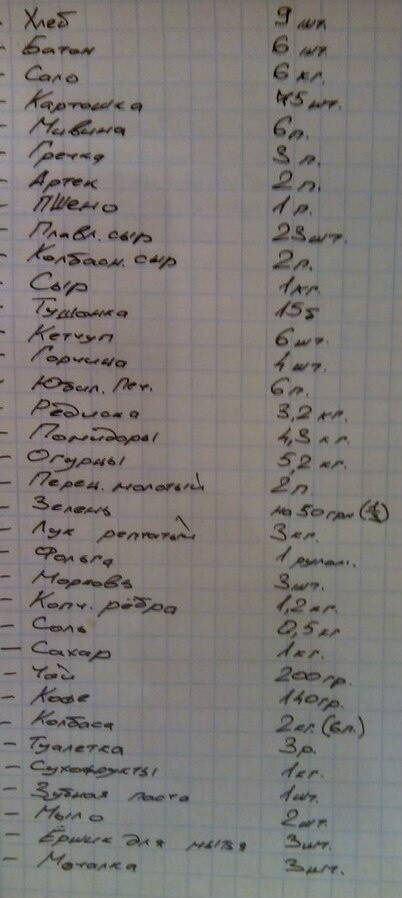 - Хлеб 9 шт.
- Батон 6 шт.
- Сало 6 кг.
- Картошка 75 шт.
- Мивина 6 п.
- Гречка 3 п.
- Артек 2 п.
- Пшено 1 п.
- Плавл. сыр 23 шт.
- Колбасн. сыр 2 п.
- Сыр 1 кг.
- Тушонка 15 б
- Кетчуп 6 шт.
- Горчица 4 шт.
- Юбил. Печ. 6 п.
- Редиска 3,2 кг.
- Помидоры 4,3 кг.
- Огурцы 5,2 кг.
- Перец. молотый 2 п
- Зелень на 50 грн
- Лук репчатый 3 кг.
- Фольга 1 рулон.
- Морковь 3 шт.
- Копч. рёбра 1,2 кг.
- Соль 0,5 кг
- Сахар 1 кг.
- Чай 200 гр.
- Кофе 140 гр.
- Колбаса 2 кг. (6 п.)
- Туалетка 3 р.
- Сухофрукты 1 кг.
- Зубная паста 1 шт.
- Мыло 2 шт.
- Ёршик для мытья 3 шт.
- Мочалка 3 шт.